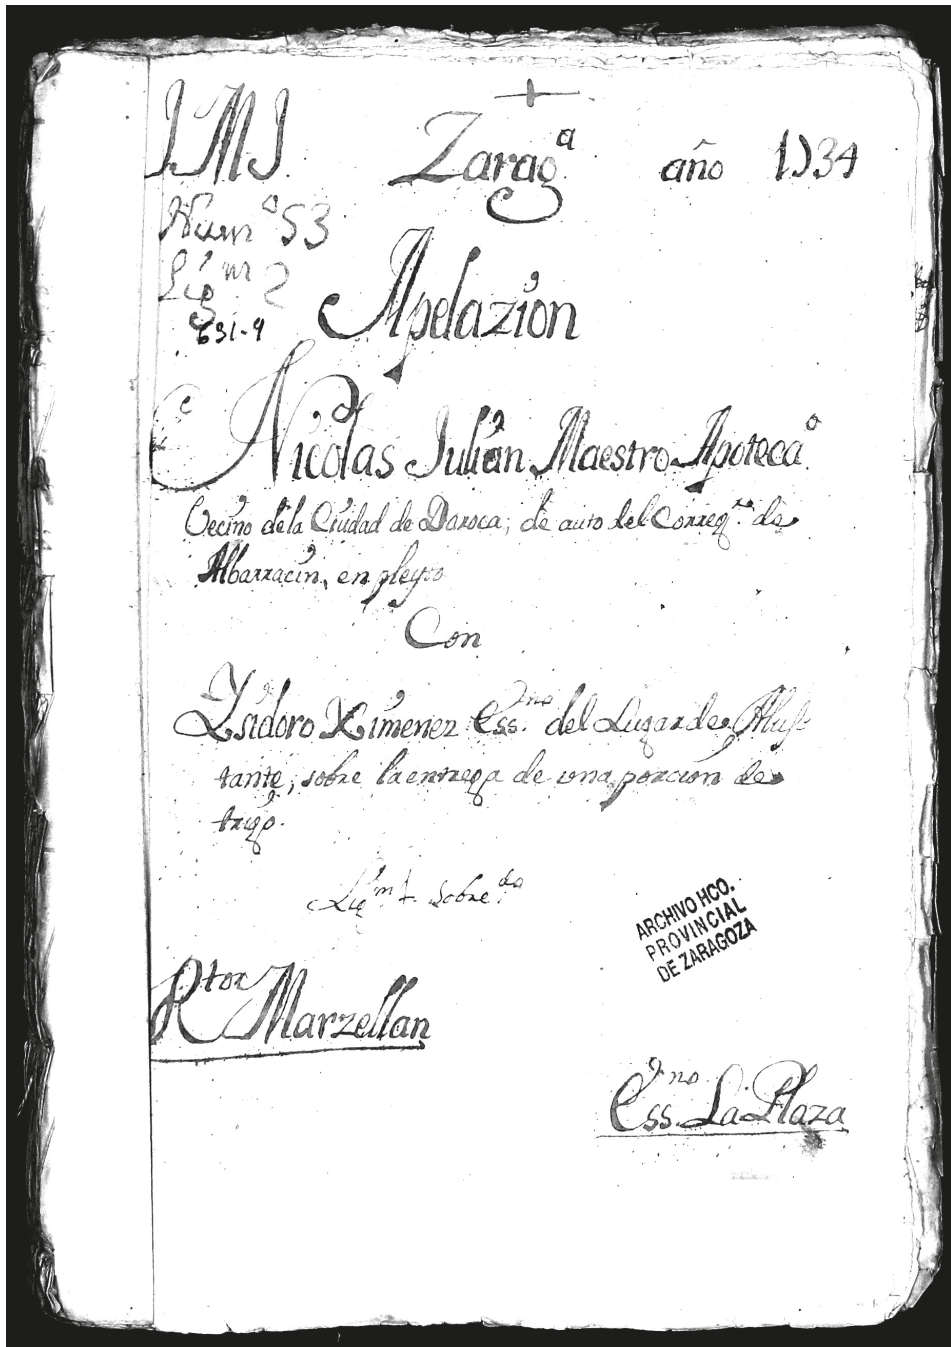 +
J M J Zarag.ª año 1734
Num.º 53
Leg.m 2
631-9
Apelazion
Nicolas Julian Maestro Apoteca.º
Vecino de la Ciudad de Daroca, de auto del Correg.or de
Albarracin, en pleyto
Con
Ysidoro Ximenez Ess.no del Lugar de Alus-
tante, sobre la entrega de una porcion de
trigo.
sobre.do
ARCHIVO HCO.
PROVINCIAL
DE ZARAGOZA
R.tor Marzellan
Ess.no La Plaza